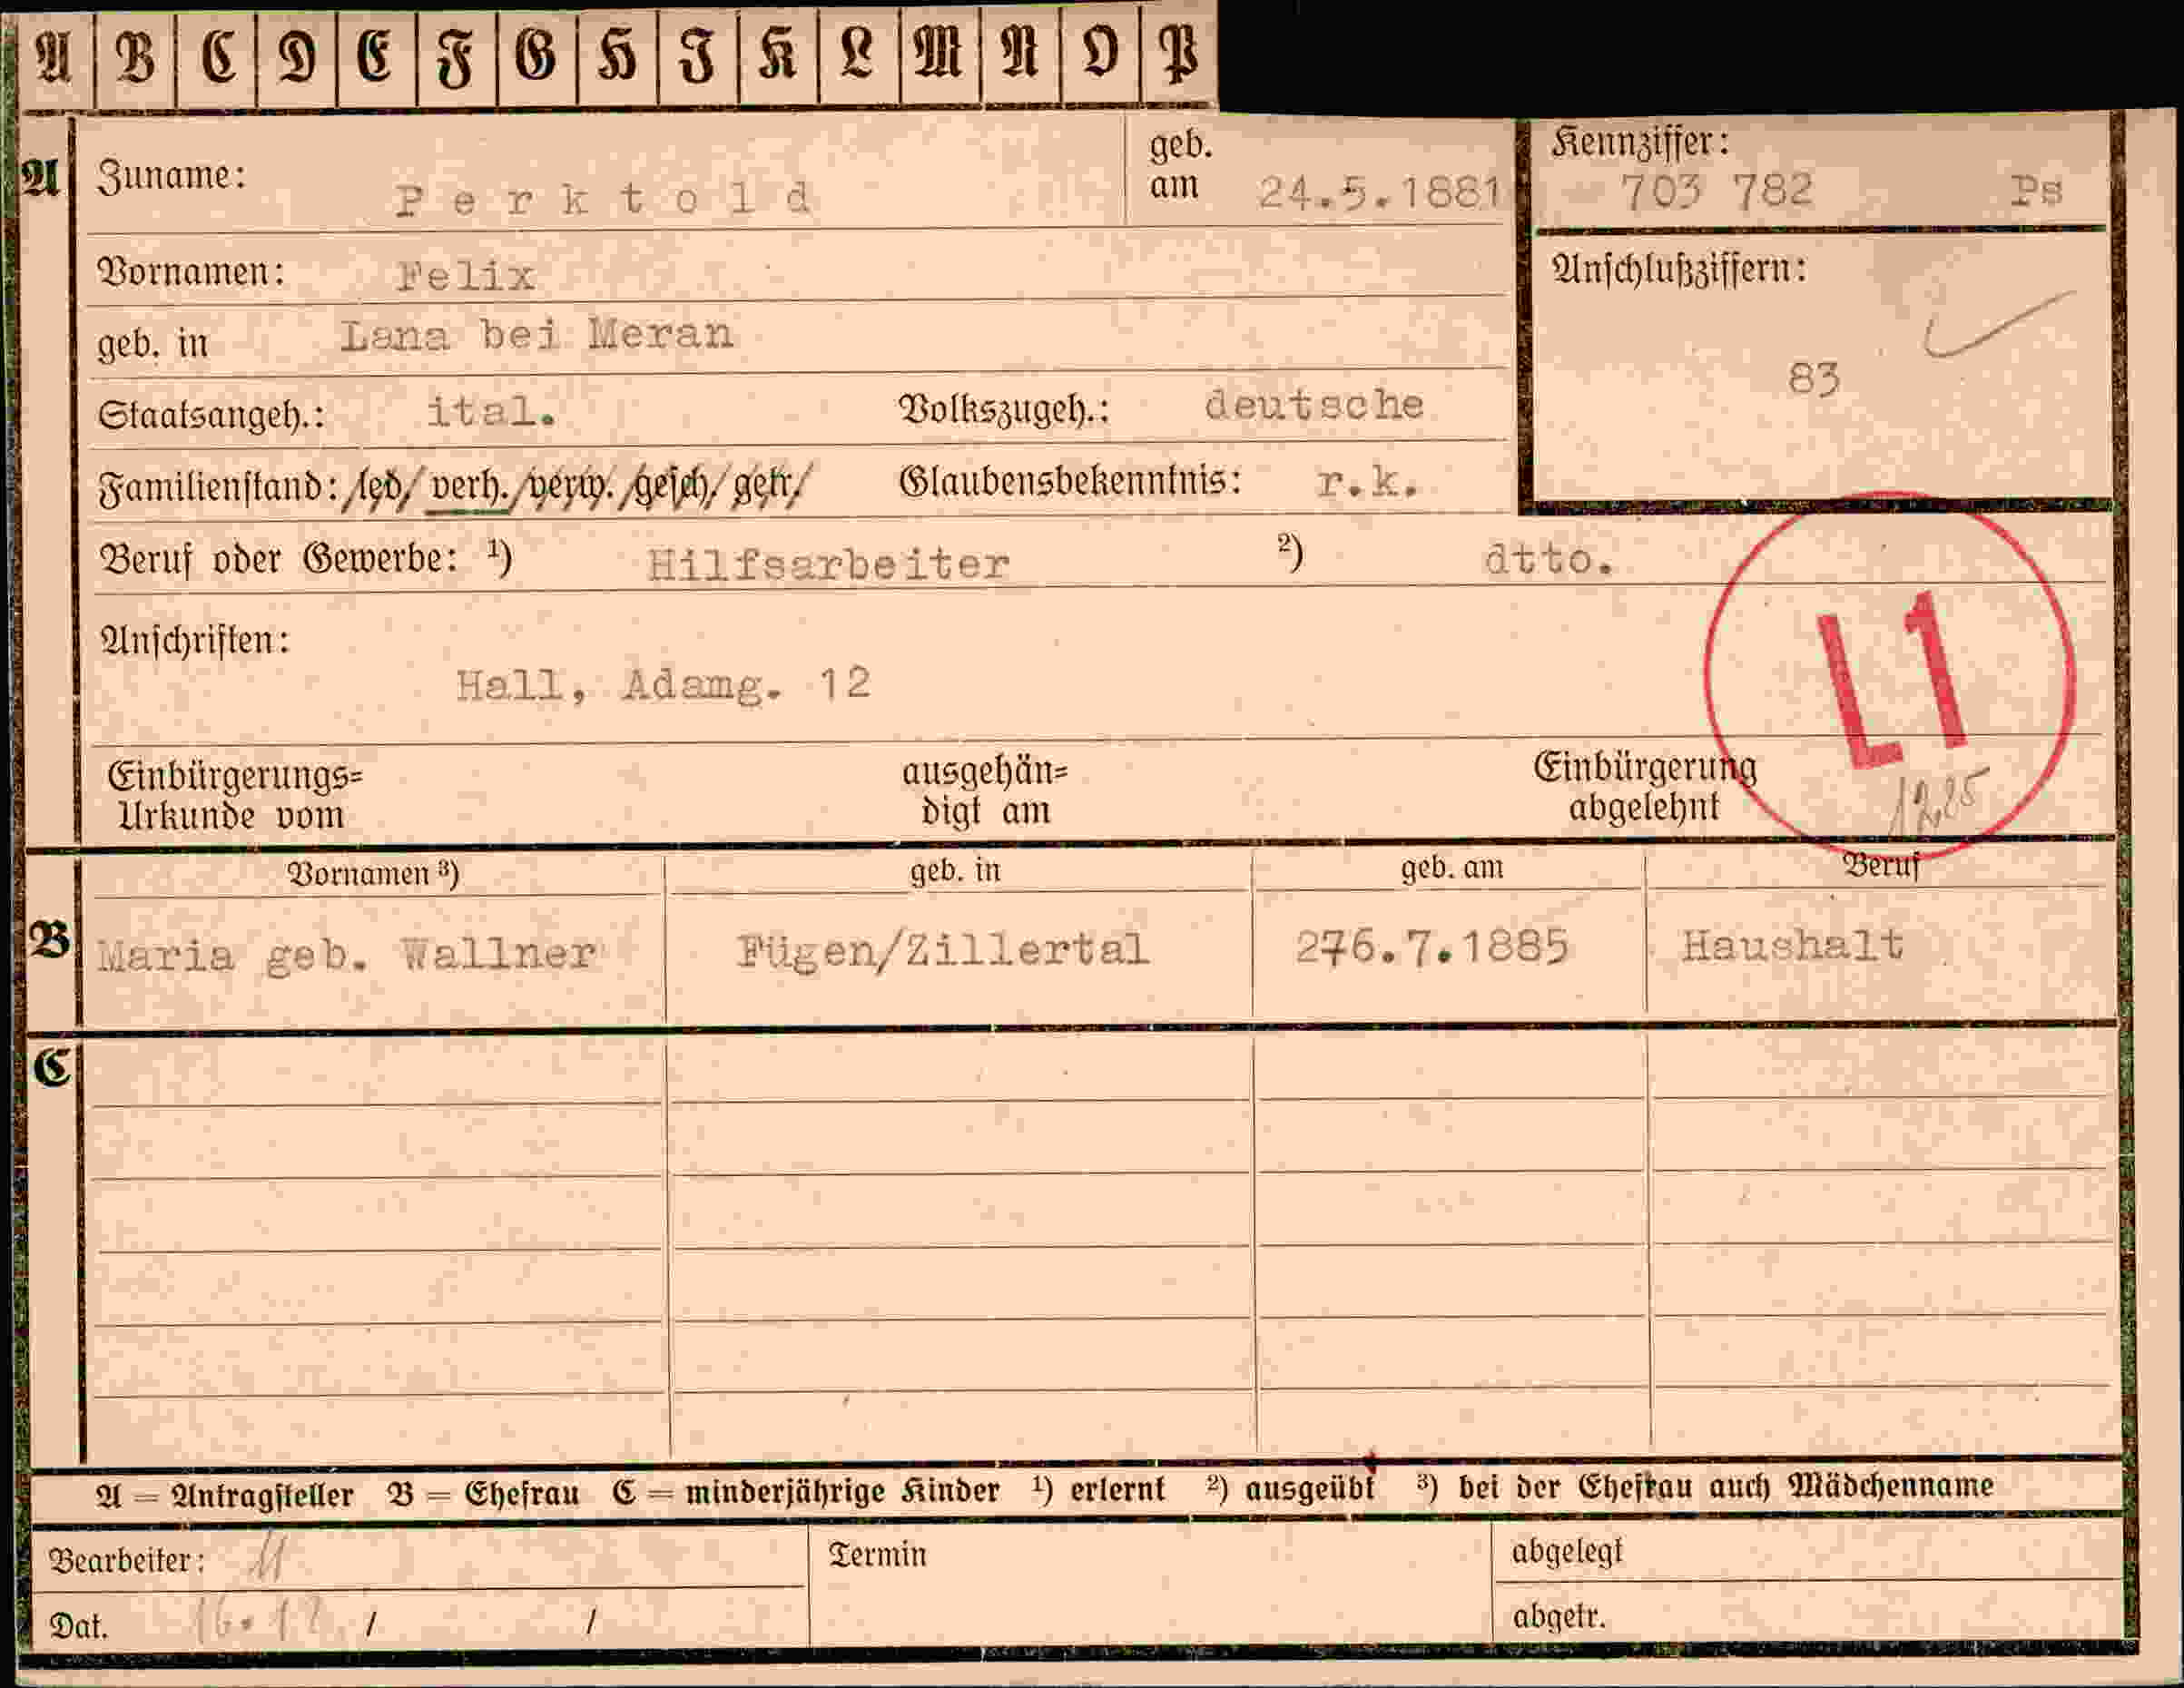 A B C D E F G H I K L M N O P
A
Zuname: Perktold
geb. am 24.5.1881
Kennziffer:
703 782 Ps
Vornamen: Felix
Anschlußziffern:
83
geb. in Lana bei Meran
Staatsangeh.: ital. Volkszugeh.: deutsche
Familienstand: led/ verh. /verw. /gesch/ getr/ Glaubensbekenntnis: r.k.
Beruf oder Gewerbe: ¹) Hilfsarbeiter ²) dtto.
Anschriften:
Hall, Adamg. 12
L1
Einbürgerungs=
Urkunde vom
ausgehän=
digt am
Einbürgerung
abgelehnt
Vornamen ³) geb. in geb. am Beruf
B Maria geb. Wallner Fügen/Zillertal 276.7.1885 Haushalt
C
A = Antragsteller B = Ehefrau C = minderjährige Kinder ¹) erlernt ²) ausgeübt ³) bei der Ehefrau auch Mädchenname
Bearbeiter:
Termin
abgelegt
Dat. 16.12. / /
abgetr.